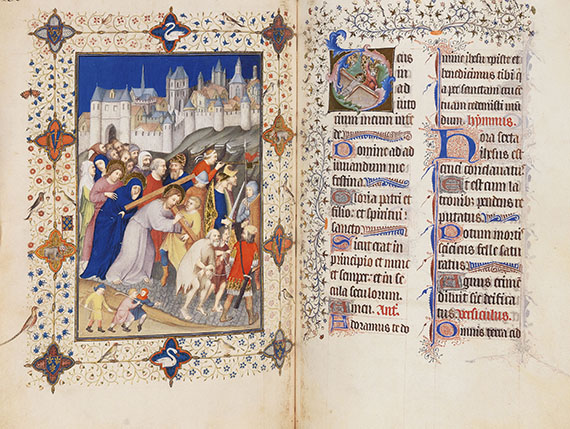 Deus
in ad
iuto
rium meum inte
de
Domine ad ad
iuuandum me
festina
Gloria patri et
filio et spiritui
sancto
Sicut erat in
principio et nunc
et semper et in se
cula seculorum.
Amen. Ant.
Adoramus te do
mine ihesu xpiste et
benedicimus tibi q
a per sanctam cruce
tuam redemisti mu
dum. Hymnus.
Hora sexta
ihesus est
cruci
est cum la
tronibus pendens re
putatus
Potum
felle satu
ratus
Agnus crime
diluit sic
tus Versiculus.
Omnis terra ad